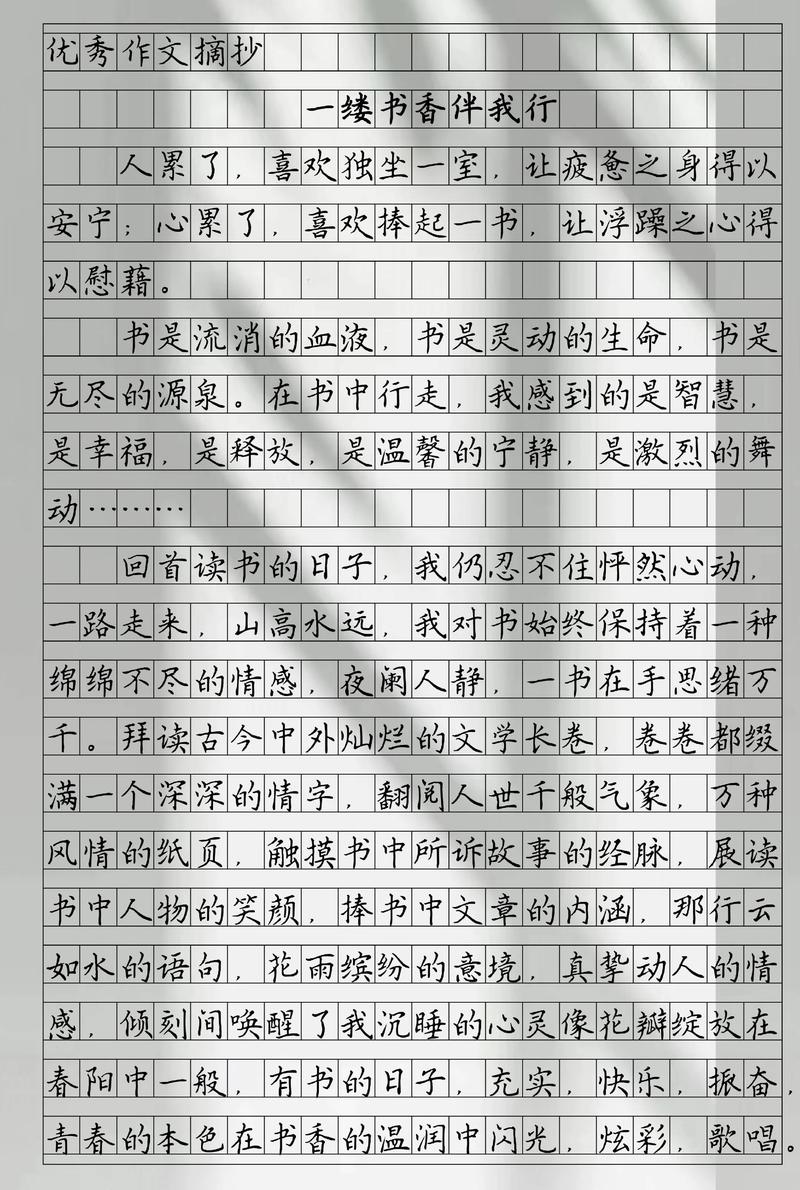 优秀作文摘抄
一缕书香伴我行
人累了，喜欢独坐一室，让疲惫之身得以
安宁；心累了，喜欢捧起一书，让浮躁之心得
以慰藉。
书是流消的血液，书是灵动的生命，书是
无尽的源泉。在书中行走，我感到的是智慧，
是幸福，是释放，是温馨的宁静，是激烈的舞
动………
回首读书的日子，我仍忍不住怦然心动，
一路走来，山高水远，我对书始终保持着一种
绵绵不尽的情感，夜阑人静，一书在手思绪万
千。拜读古今中外灿烂的文学长卷，卷卷都缀
满一个深深的情字，翻阅人世千般气象，万种
风情的纸页，触摸书中所诉故事的经脉，展读
书中人物的笑颜，捧书中文章的内涵，那行云
如水的语句，花雨缤纷的意境，真挚动人的情
感，倾刻间唤醒了我沉睡的心灵像花瓣绽放在
春阳中一般，有书的日子，充实，快乐，振奋，
青春的本色在书香的温润中闪光，炫彩，歌唱。